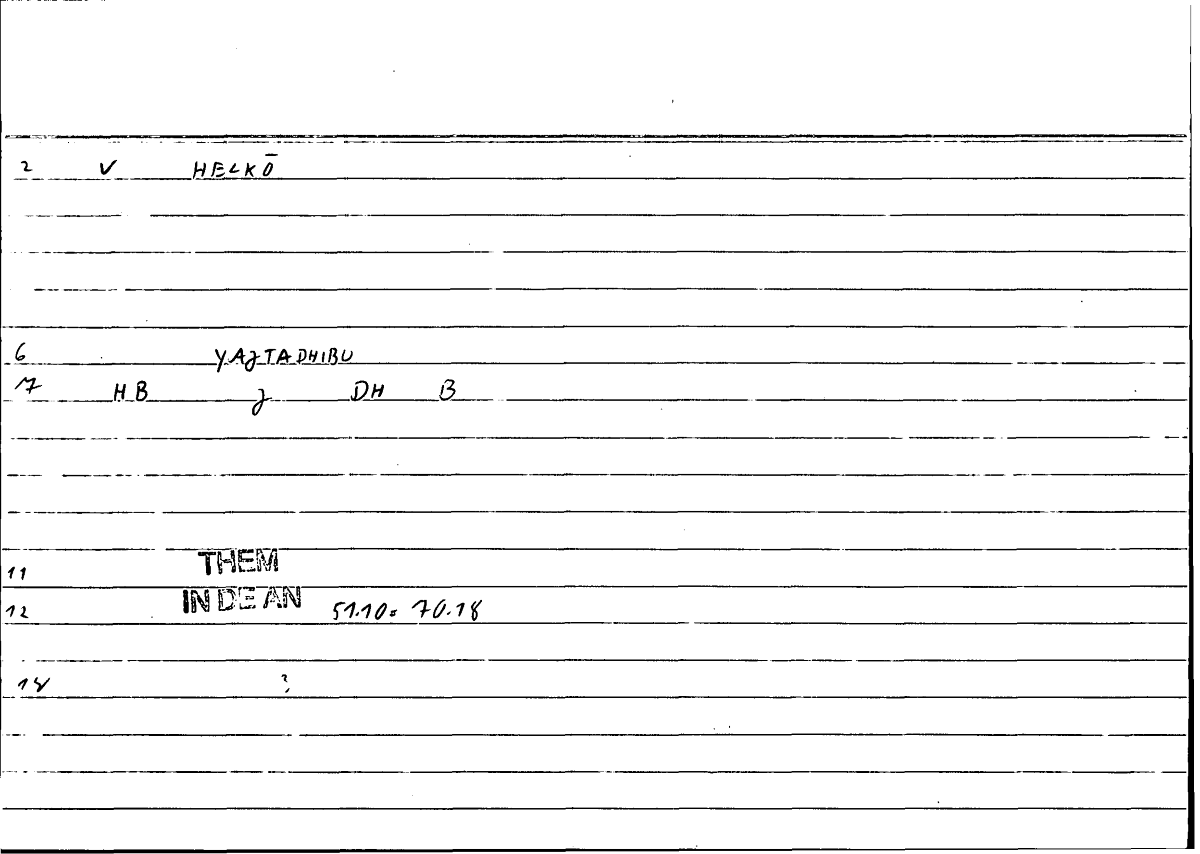 2 V HELKŌ
6 YAJTADHIBU
7 HB J DH B
11 THEM
12 IN DE AN 51.10= 70.18
14 ?